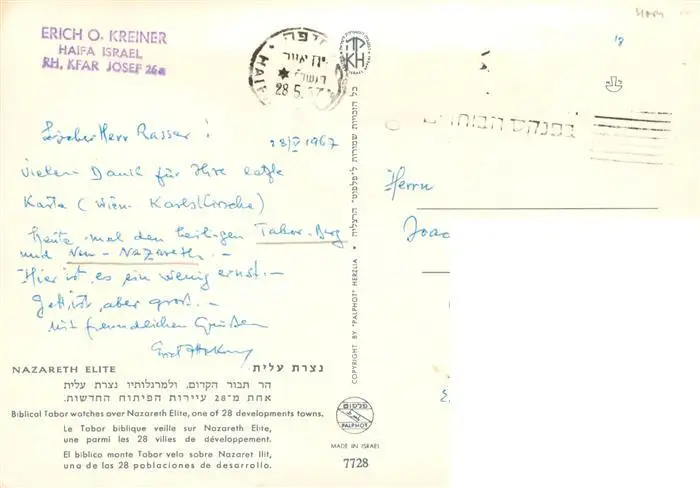 ERICH O. KREINER
HAIFA ISRAEL
RH, KFAR JOSEF 26a
חיפה
HAIF
28.5.
28/V 1967
Lieber Herr Rasser!
vielen Dank für Ihre letzte
Karte (Wien- Karlskirche)
heute mal den heiligen Tabor-Berg
und Neu-Nazareth.-
Hier ist es ein wenig ernst.-
Gott ist aber groß.-
mit freundlichen Grüßen
NAZARETH ELITE
נצרת עלית
הר תבור הקדום, ולמרגלותיו נצרת עלית
אחת מ־28 עיירות הפיתוח החדשות.
Biblical Tabor watches over Nazareth Elite, one of 28 developments towns.
Le Tabor biblique veille sur Nazareth Elite,
une parmi les 28 villes de développement.
El biblico monte Tabor vela sobre Nazaret Ilit,
una de las 28 poblaciones de desarrollo.
כל הזכויות שמורות ל"פלפוט" הרצליה
COPYRIGHT BY "PALPHOT" HERZLIA
פלפוט
PALPHOT
MADE IN ISRAEL
7728
בפנקס הבוחרים
Herrn
Joac